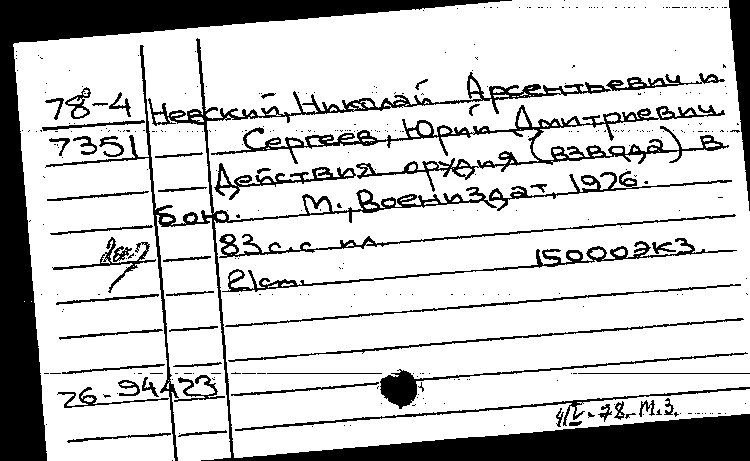 78-4 Невский, Николай Арсентьевич и
7351 Сергеев, Юрий Дмитриевич.
Действия орудия (взвода) в
бою. М., Воениздат, 1976.
83 с. с ил.
15000 экз.
76-94423
4/V-78. М.З.